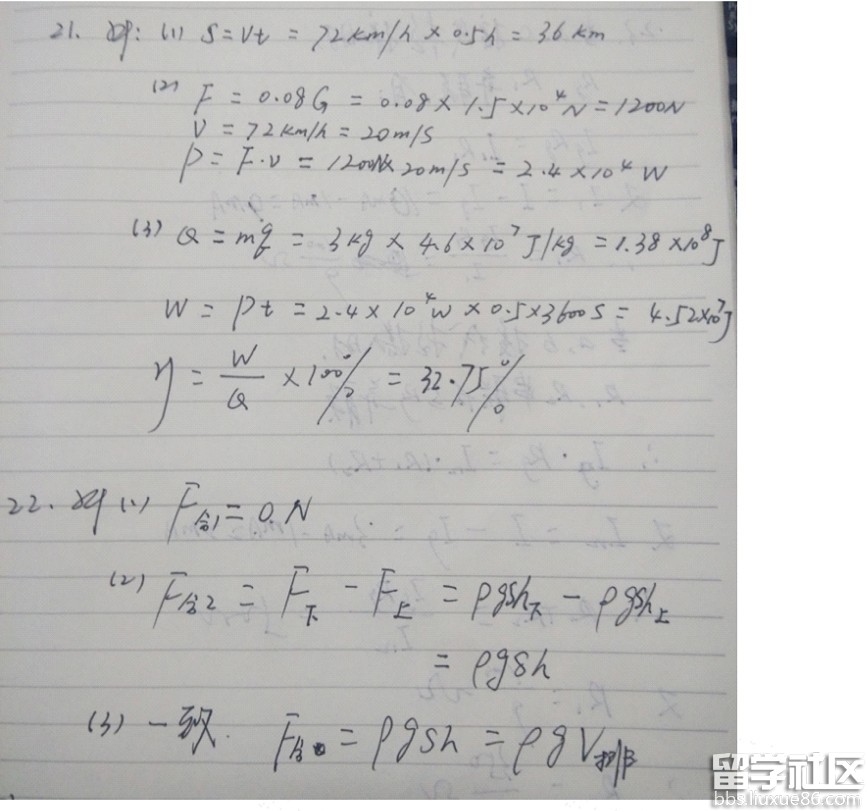 21. 解: (1) S=Vt = 72km/h × 0.5h = 36 km
(2) F = 0.08G = 0.08 × 1.5×10⁴N = 1200N
V = 72km/h = 20m/s
P = F·v = 1200N× 20m/s = 2.4×10⁴ W
(3) Q = mq = 3kg × 4.6×10⁷ J/kg = 1.38×10⁸J
W = Pt = 2.4×10⁴W × 0.5×3600s = 4.52×10⁷J
η = W/Q ×100% = 32.75%
22. 解 (1) F合1 = 0.N
(2) F合2 = F下 - F上 = ρgsh下 - ρgsh上
= ρgsh
(3) 一致. F合 = ρgsh = ρgV排
留学社区
bbs.liuxue86.com